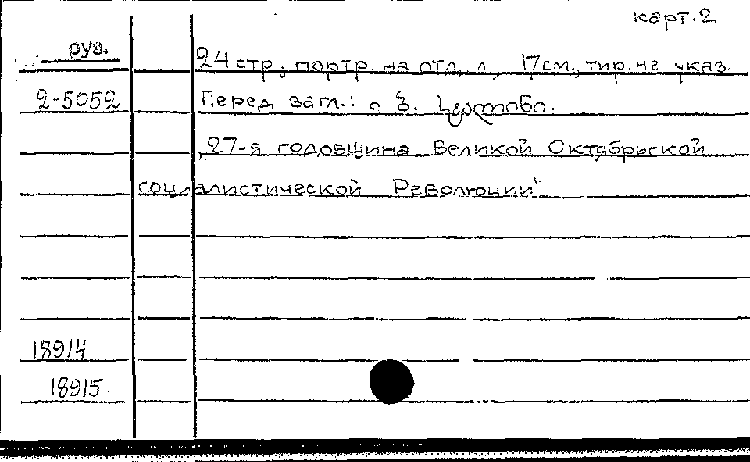 карт. 2
руз.
24 стр., портр. на отд. л., 17 см., тир. не указ.
2-5052
Перед загл.:
27-я годовщина Великой Октябрьской
социалистической Революции"
18914
18915